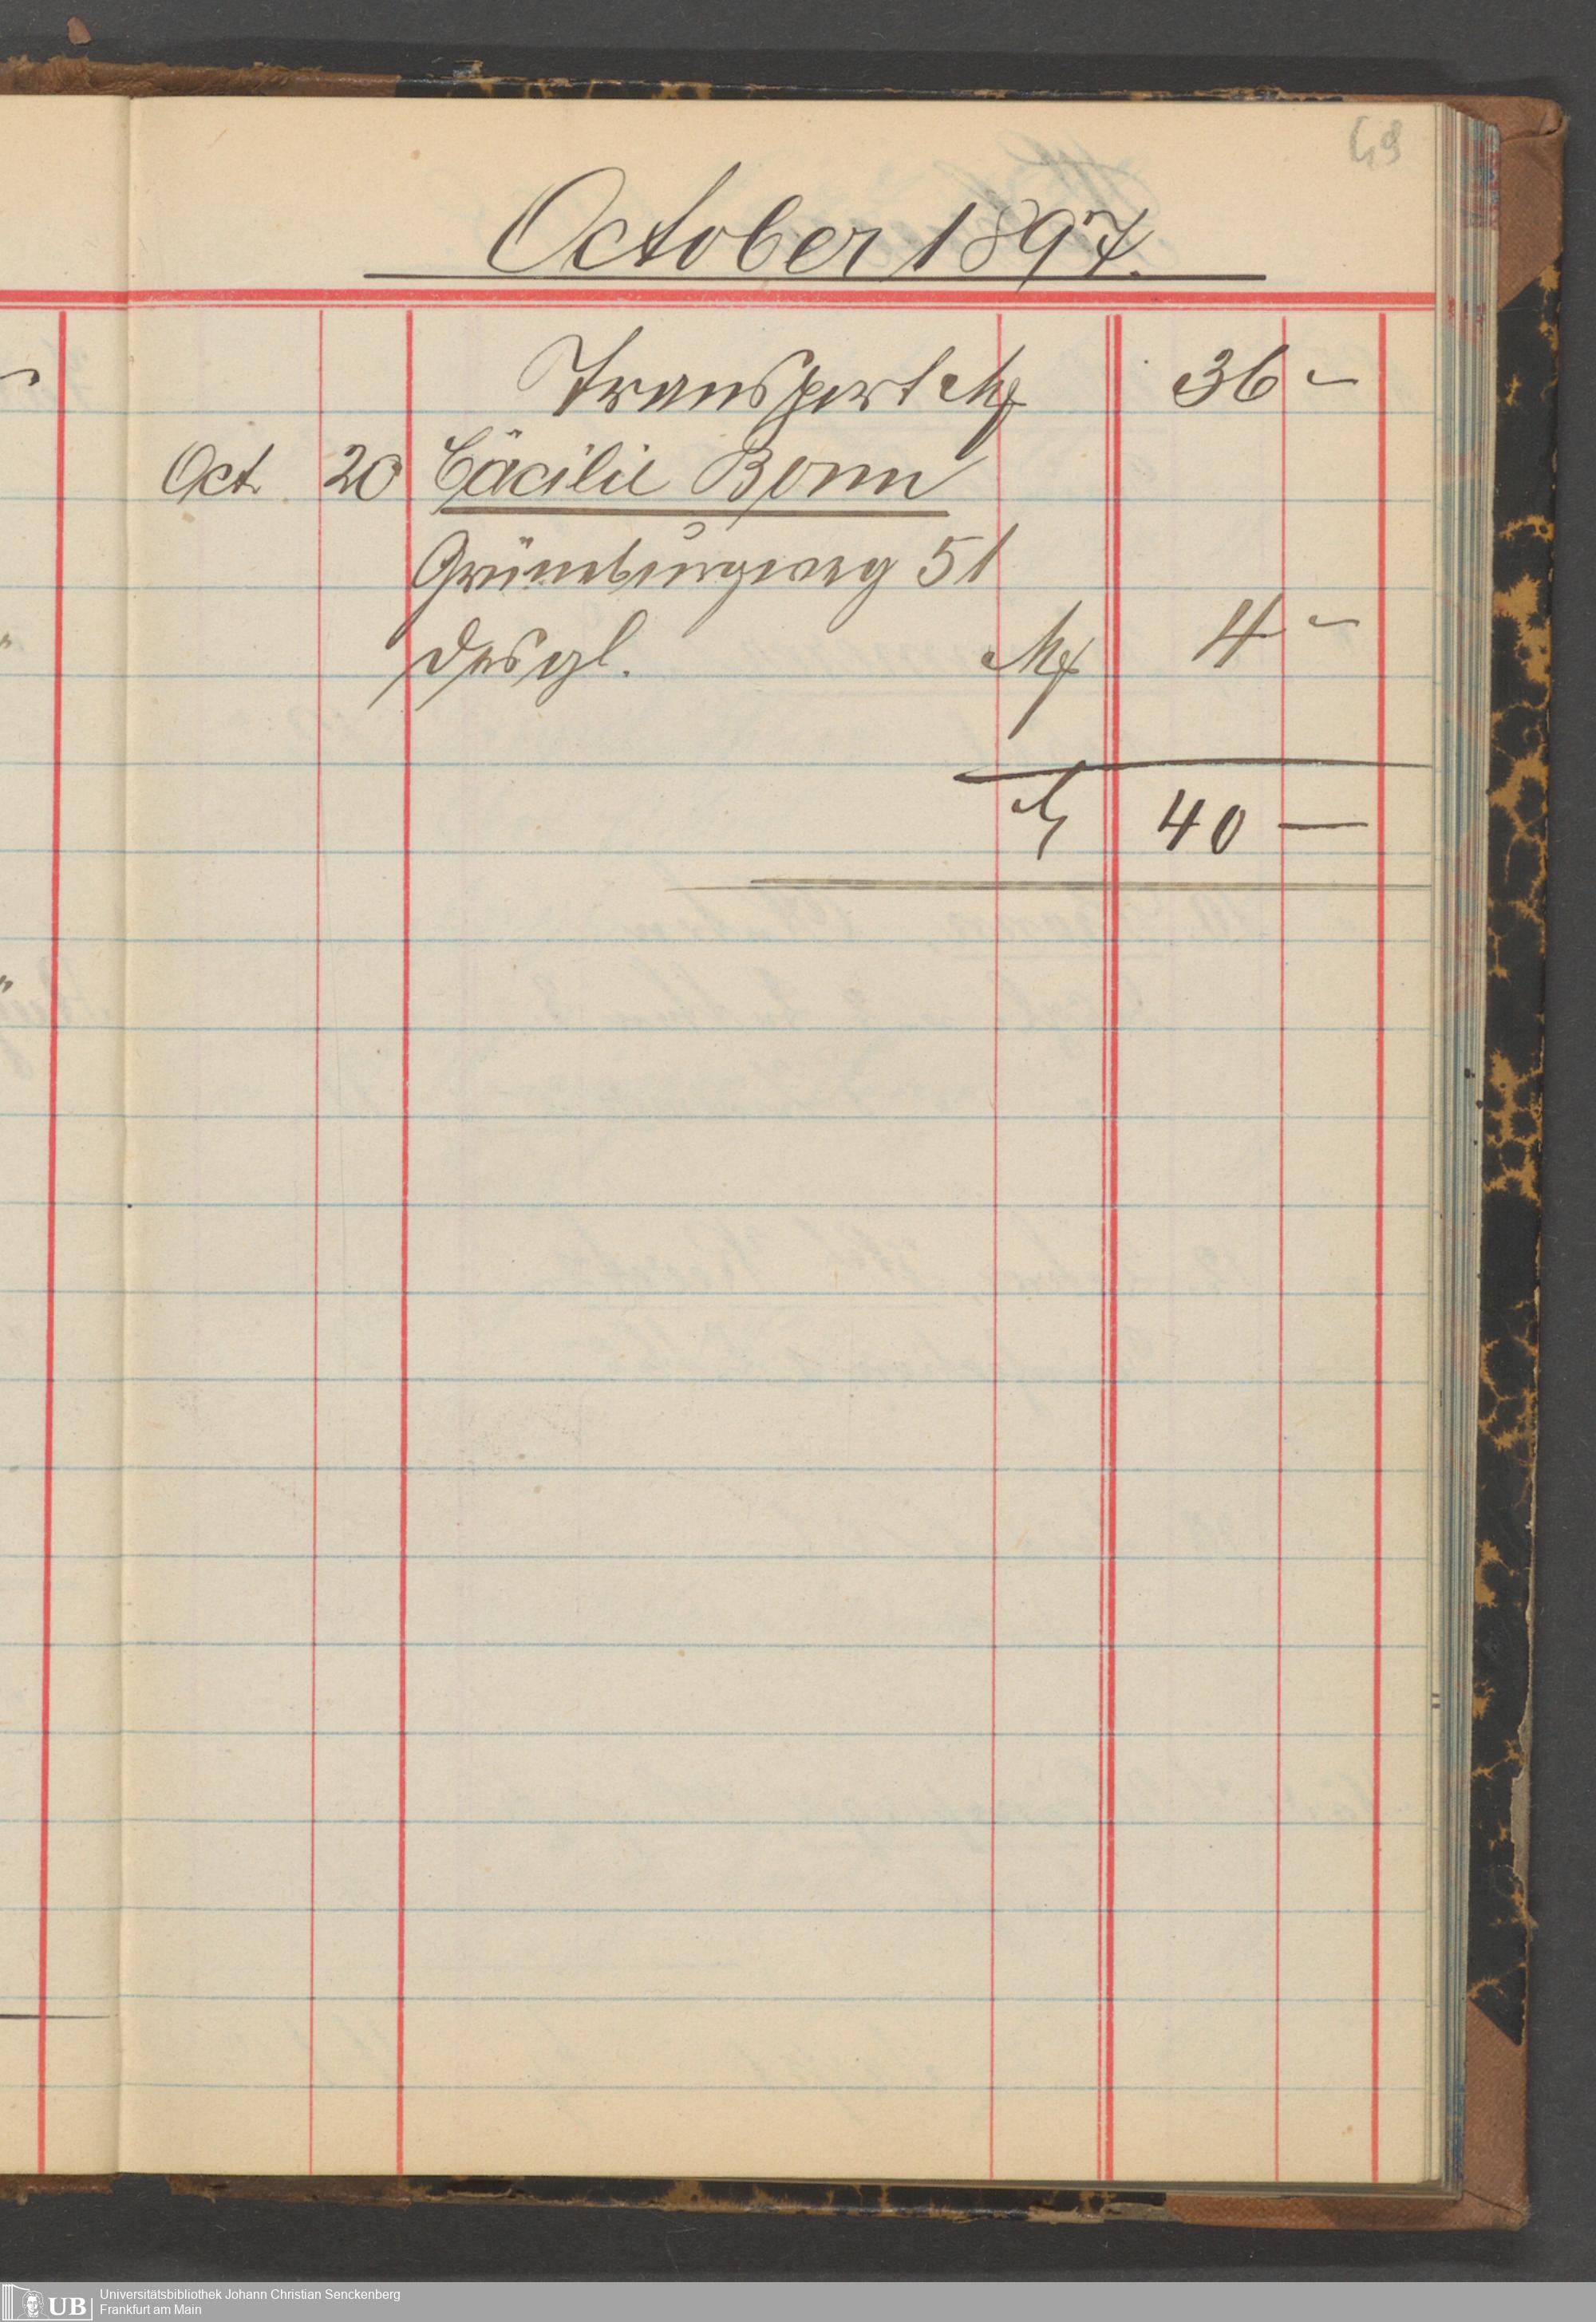 49
October 1897.
Transport M 36 -
Oct 20 Cäcilie Bonn
Grüneburgweg 51
desgl. M 4 -
M 40 -
UB Universitätsbibliothek Johann Christian Senckenberg
Frankfurt am Main